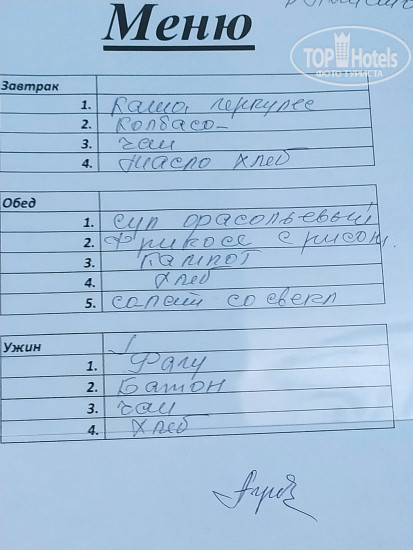 Меню
TOP Hotels
ФОТО ТУРИСТА
Завтрак
1. Каша геркулес
2. Колбасо
3. чаи
4. Масло хлеб
Обед
1. суп фрасольевый
2. Фрикосе с рисом.
3. Кампот
4. хлеб
5. салат со свекл
Ужин
1. Рагу
2. Батон
3. чаи
4. хлеб